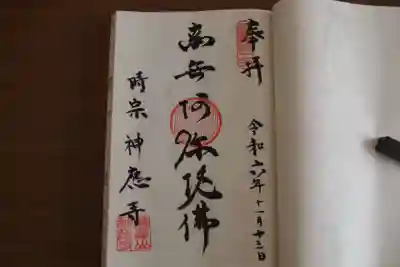 奉拝
令和六年十一月十三日
南無阿弥陀佛
時宗神應寺